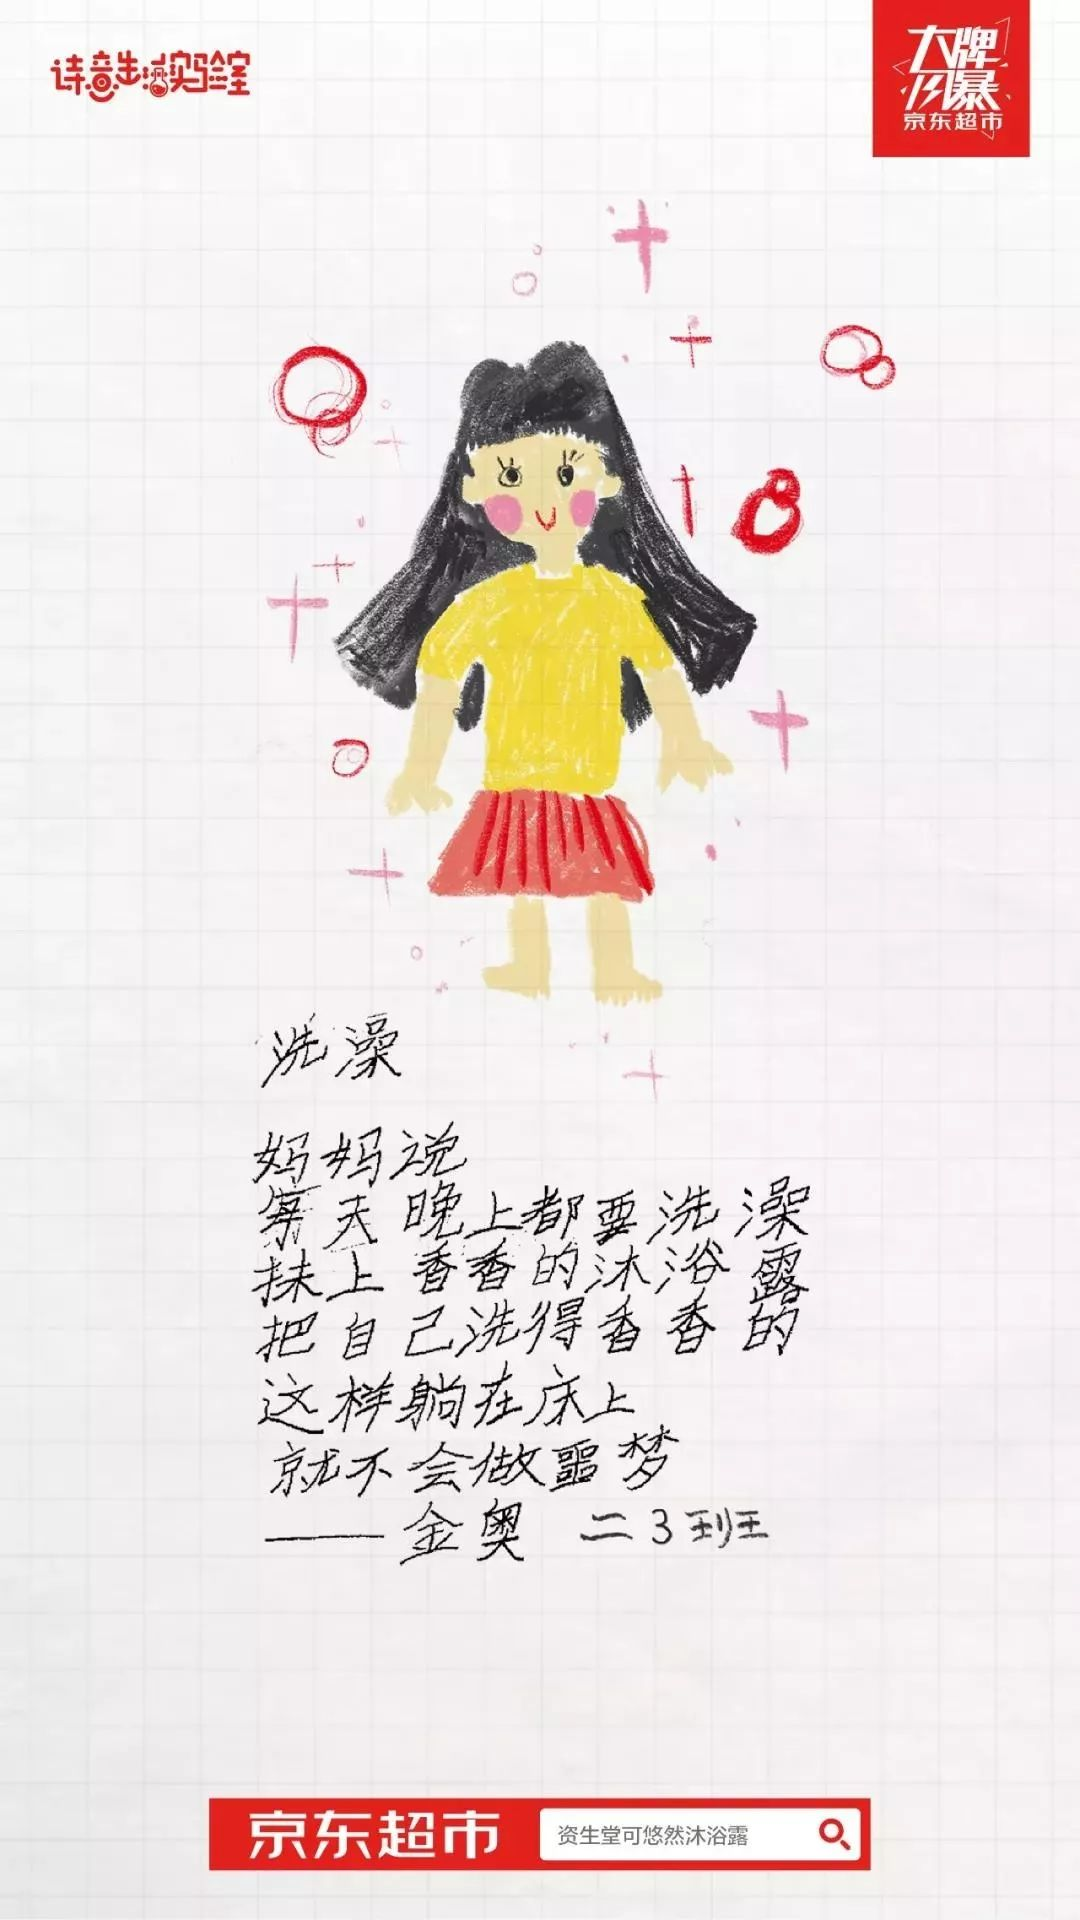 诗意生活实验室
大牌
风暴
京东超市
洗澡
妈妈说
每天晚上都要洗澡
抹上香香的沐浴露
把自己洗得香香的
这样躺在床上
就不会做噩梦
——金奥 二3班
京东超市 资生堂可悠然沐浴露